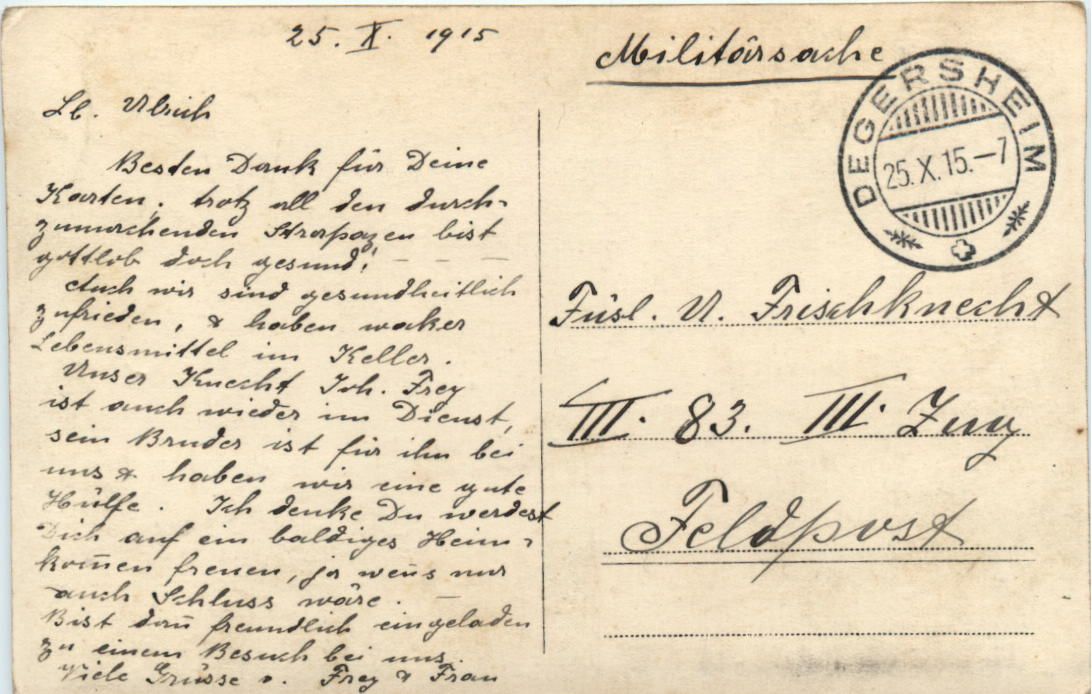 25. X. 1915
Lb. Ulrich
Besten Dank für Deine
Karten, trotz all den durch-
zumachenden Strapazen bist
gottlob doch gesund! - - -
Auch wir sind gesundheitlich
zufrieden, & haben waker
Lebensmittel im Keller.
Unser Knecht Joh. Frey
ist auch wieder im Dienst,
sein Bruder ist für ihn bei
uns & haben wir eine gute
Hülfe. Ich denke Du werdest
Dich auf ein baldiges Heim-
kom̄en freuen, ja wen̄s nur
auch Schluss wäre. -
Bist dan̄ freundlich eingeladen
zu einem Besuch bei uns.
Viele Grüsse v. Frey & Frau
Militärsache
DEGERSHEIM
25.X.15.-7
Füsl. U. Frischknecht
III. 83. III. Zug
Feldpost